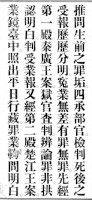 推問生前之罪垢四承部官檢判死後之
受報歷歷分明寃業無差有罪無罪先經
第一殿秦廣王案獄官查判辨論罪非拱
認明白判受業報又經第二殿楚江王案
業鏡臺中照出平日行藏罪業明白